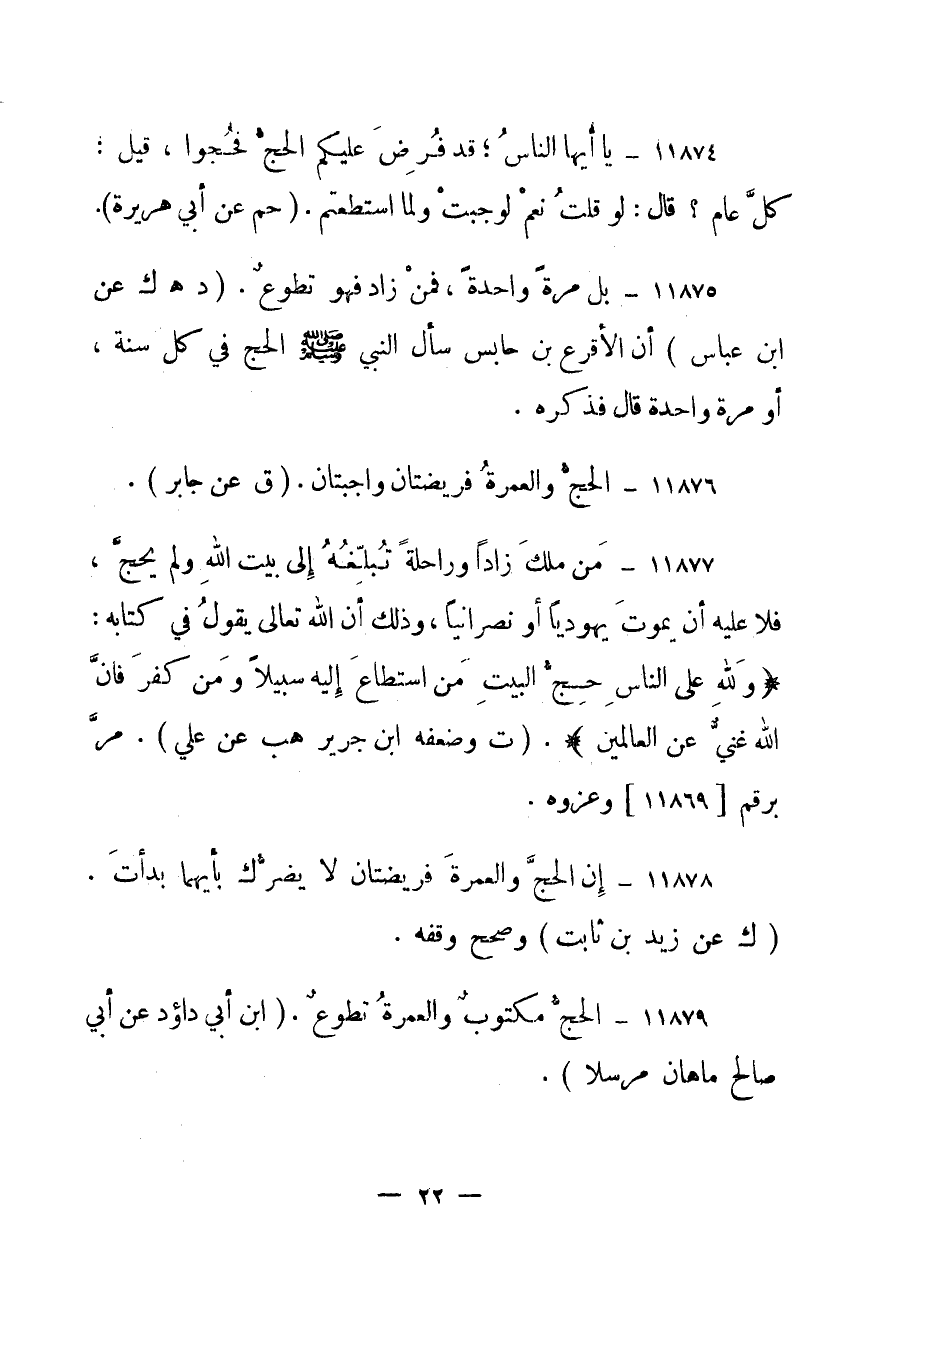 ١١٨٧٤ ــ يا أيها الناسُ ؛ قد فُرِضَ عليكم الحجُّ فحُجوا ، قيل :
كلَّ عام ؟ قال : لو قلتُ نعمْ لوجبتْ ولما استطعتم . ( حم عن أبي هريرة).
١١٨٧٥ ــ بل مرةً واحدةً ، فمنْ زاد فهو تطوعٌ . ( د هـ ك عن
ابن عباس ) أن الأقرع بن حابس سأل النبي ﷺ الحج في كل سنة ،
أو مرة واحدة قال فذكره .
١١٨٧٦ ــ الحجُّ والعمرةُ فريضتان واجبتان . ( ق عن جابر ) .
١١٨٧٧ ــ مَن ملكَ زاداً وراحلةً تُبلّغُهُ إلى بيت اللهِ ولم يحجَّ ،
فلا عليه أن يموتَ يهودياً أو نصرانياً ، وذلك أن الله تعالى يقولُ في كتابه :
﴿ وَللهِ على الناسِ حِجُّ البيتِ مَن استطاعَ إليه سبيلاً ومَن كفرَ فانَّ
الله غنيٌّ عن العالمين ﴾ . ( ت وضعفه ابن جرير هب عن علي ) . مرَّ
برقم [ ١١٨٦٩ ] وعزوه .
١١٨٧٨ ــ إن الحجَّ والعمرةَ فريضتان لا يضرُّك بأيهما بدأتَ .
( ك عن زيد بن ثابت ) وصحح وقفه .
١١٨٧٩ ــ الحجُّ مكتوبٌ والعمرةُ تطوعٌ . ( ابن أبي داؤد عن أبي
صالح ماهان مرسلا ) .
— ٢٢ —